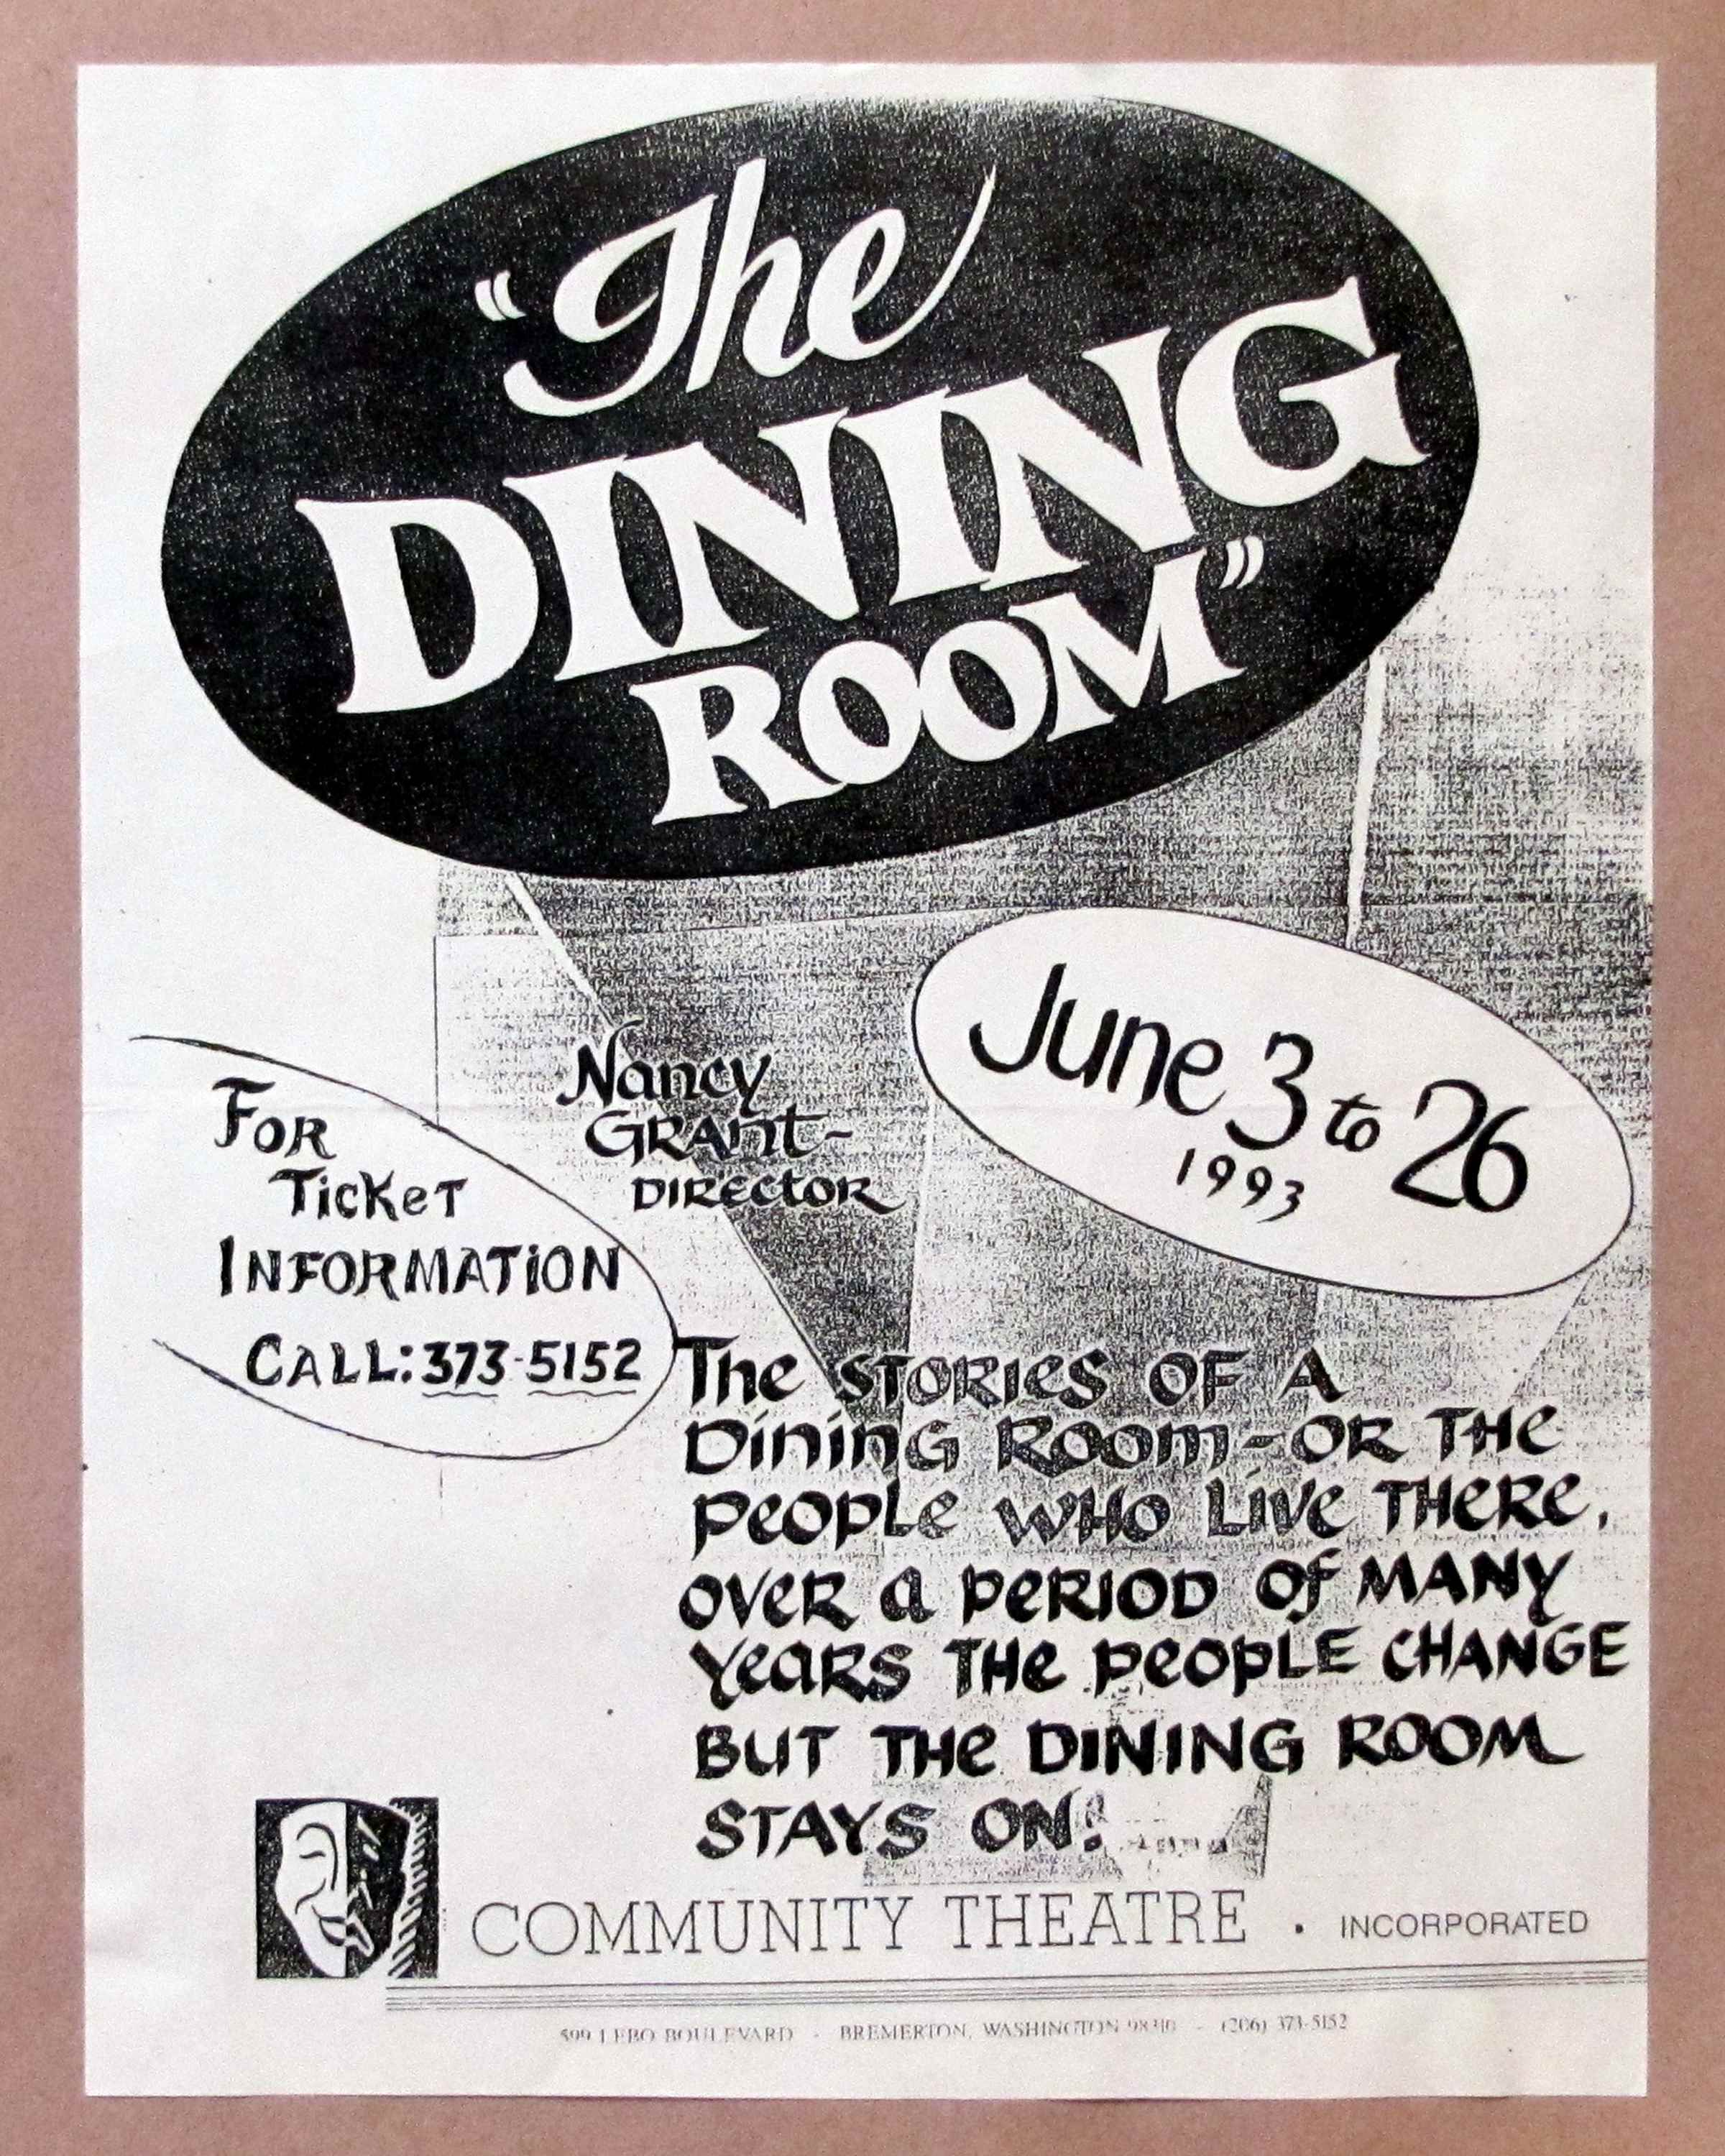 "The
DINING
ROOM"
June 3 to 26
1993
Nancy
GRANT-
DIRECTOR
FOR
TICKET
INFORMATION
CALL: 373-5152
THE STORIES OF A
DINING ROOM - OR THE
PEOPLE WHO LIVE THERE,
OVER A PERIOD OF MANY
YEARS THE PEOPLE CHANGE
BUT THE DINING ROOM
STAYS ON!
COMMUNITY THEATRE • INCORPORATED
599 LEBO BOULEVARD - BREMERTON, WASHINGTON 98310 - (206) 373-5152